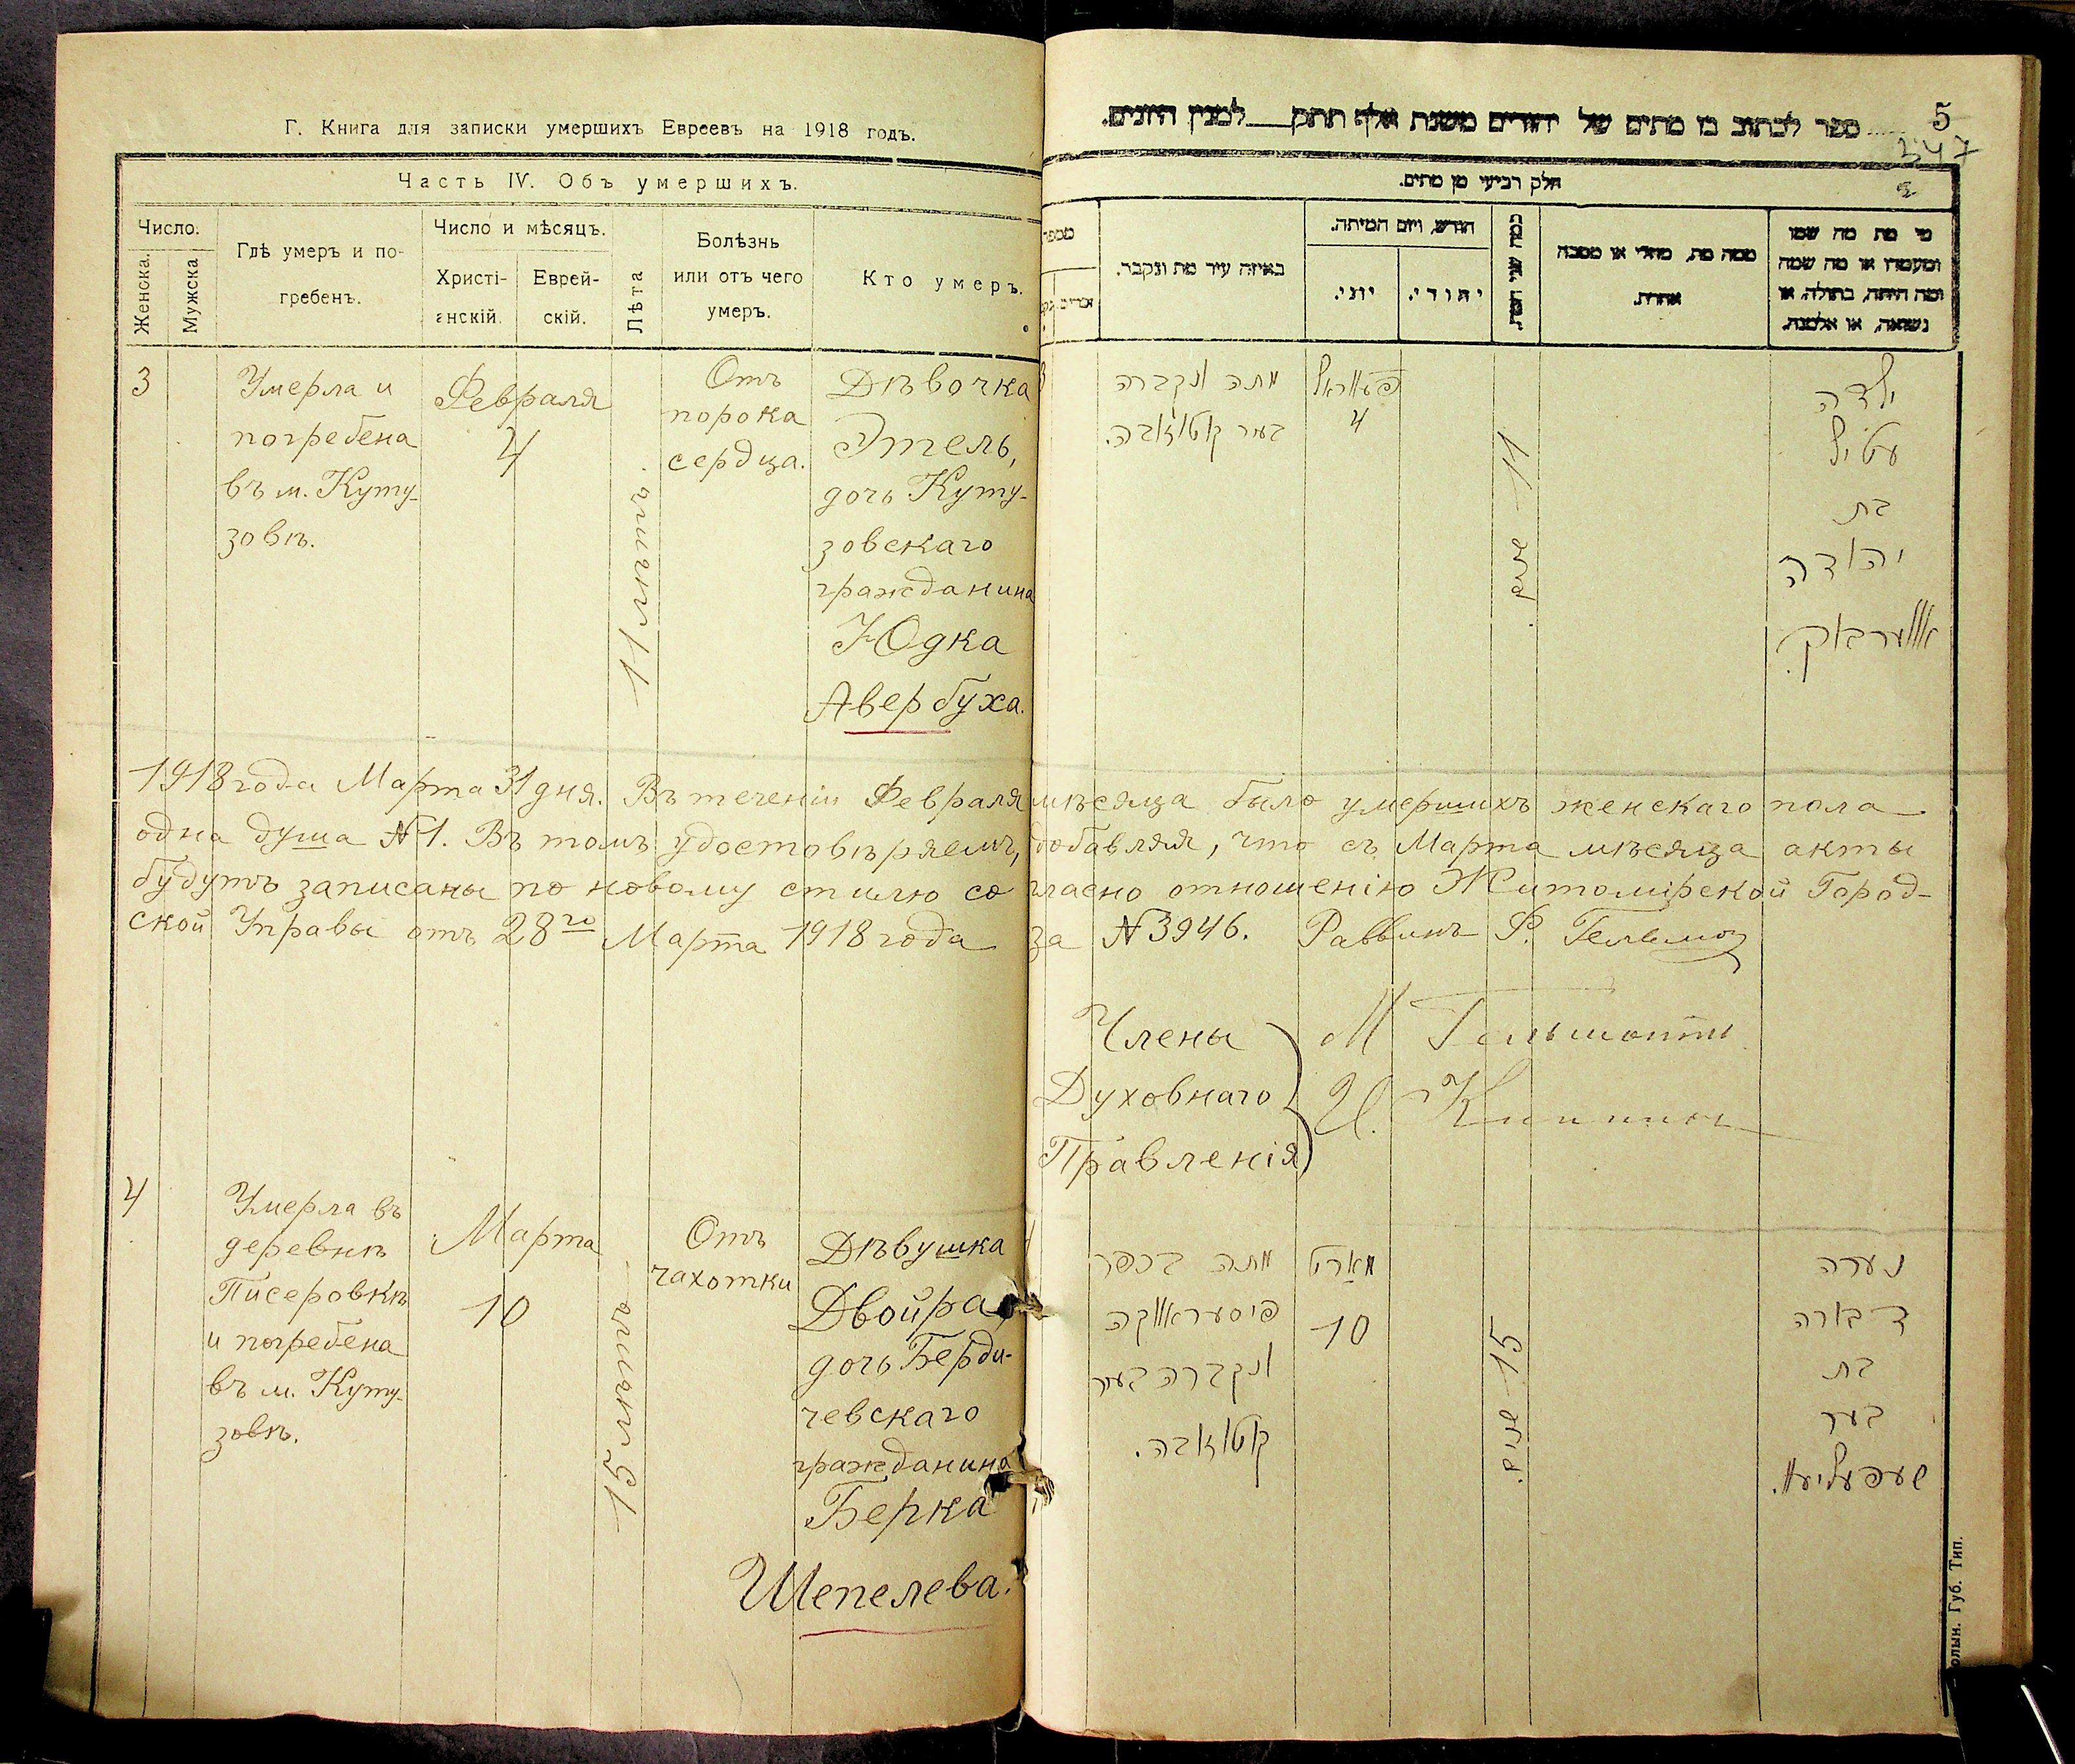 Г. Книга для записки умершихъ Евреевъ на 1918 годъ.
Часть IV. Объ умершихъ.
Число.
Женска.
Мужска
Гдѣ умеръ и по-
гребенъ.
Число и мѣсяцъ.
Христі-
анскій.
Еврей-
скій.
Лѣта
Болѣзнь
или отъ чего
умеръ.
Кто умеръ.
3
Умерла и
погребена
въ м. Куту-
зовѣ.
Февраля
4
11 лѣтъ.
Отъ
порока
сердца.
Дѣвочка
Этель,
дочь Куту-
зовскаго
гражданина
Юдка
Авербуха.
5
347
ספר לכתוב בו מתים של יהודים משנת אלף תתק למנין היונים.
חלק רביעי מן מתים.
מספר
זכרים
באיזה עיר מת ונקבר.
חודש, ויום המיתה.
יוני.
יהודי.
כמה שני המת.
ממה מת, מחלי או מסבה
אחרת.
מי מת מה שמו
ומעמדו או מה שמה
ומה היתה, בתולה, או
נשואה, או אלמנה.
3
מתה ונקברה
בעיר קוטוזובה.
פעווראל
4
11 שנים.
ילדה
עטיל
בת
יהודה
אווערבוך.
1918 года Марта 31 дня. Въ теченіи Февраля мѣсяца было умершихъ женскаго пола
одна душа №1. Въ томъ удостовѣряемъ, добавляя, что съ Марта мѣсяца акты
будутъ записаны по новому стилю согласно отношенію Житомірской Город-
ской Управы отъ 28го Марта 1918 года за №3946. Раввинъ
Члены
Духовнаго
Правленія
М
И.
4
Умерла въ
деревнѣ
Писеровкѣ
и погребена
въ м. Куту-
зовѣ.
Марта
10
15 лѣтъ
Отъ
чахотки
Дѣвушка
Двойра,
дочь Берди-
чевскаго
гражданина
Берка
Шепелева.
4
מתה בכפר
פיסעראווקה
ונקברה בעיר
קוטוזובה.
מארט
10
15 שנים.
נערה
דבורה
בת
בער
שעפעליעוו.
олын. Губ. Тип.